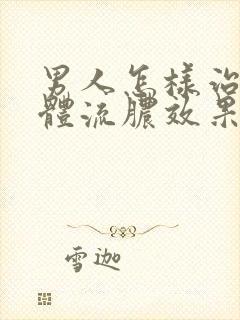 男人怎樣治
體流膿效果
雪迦